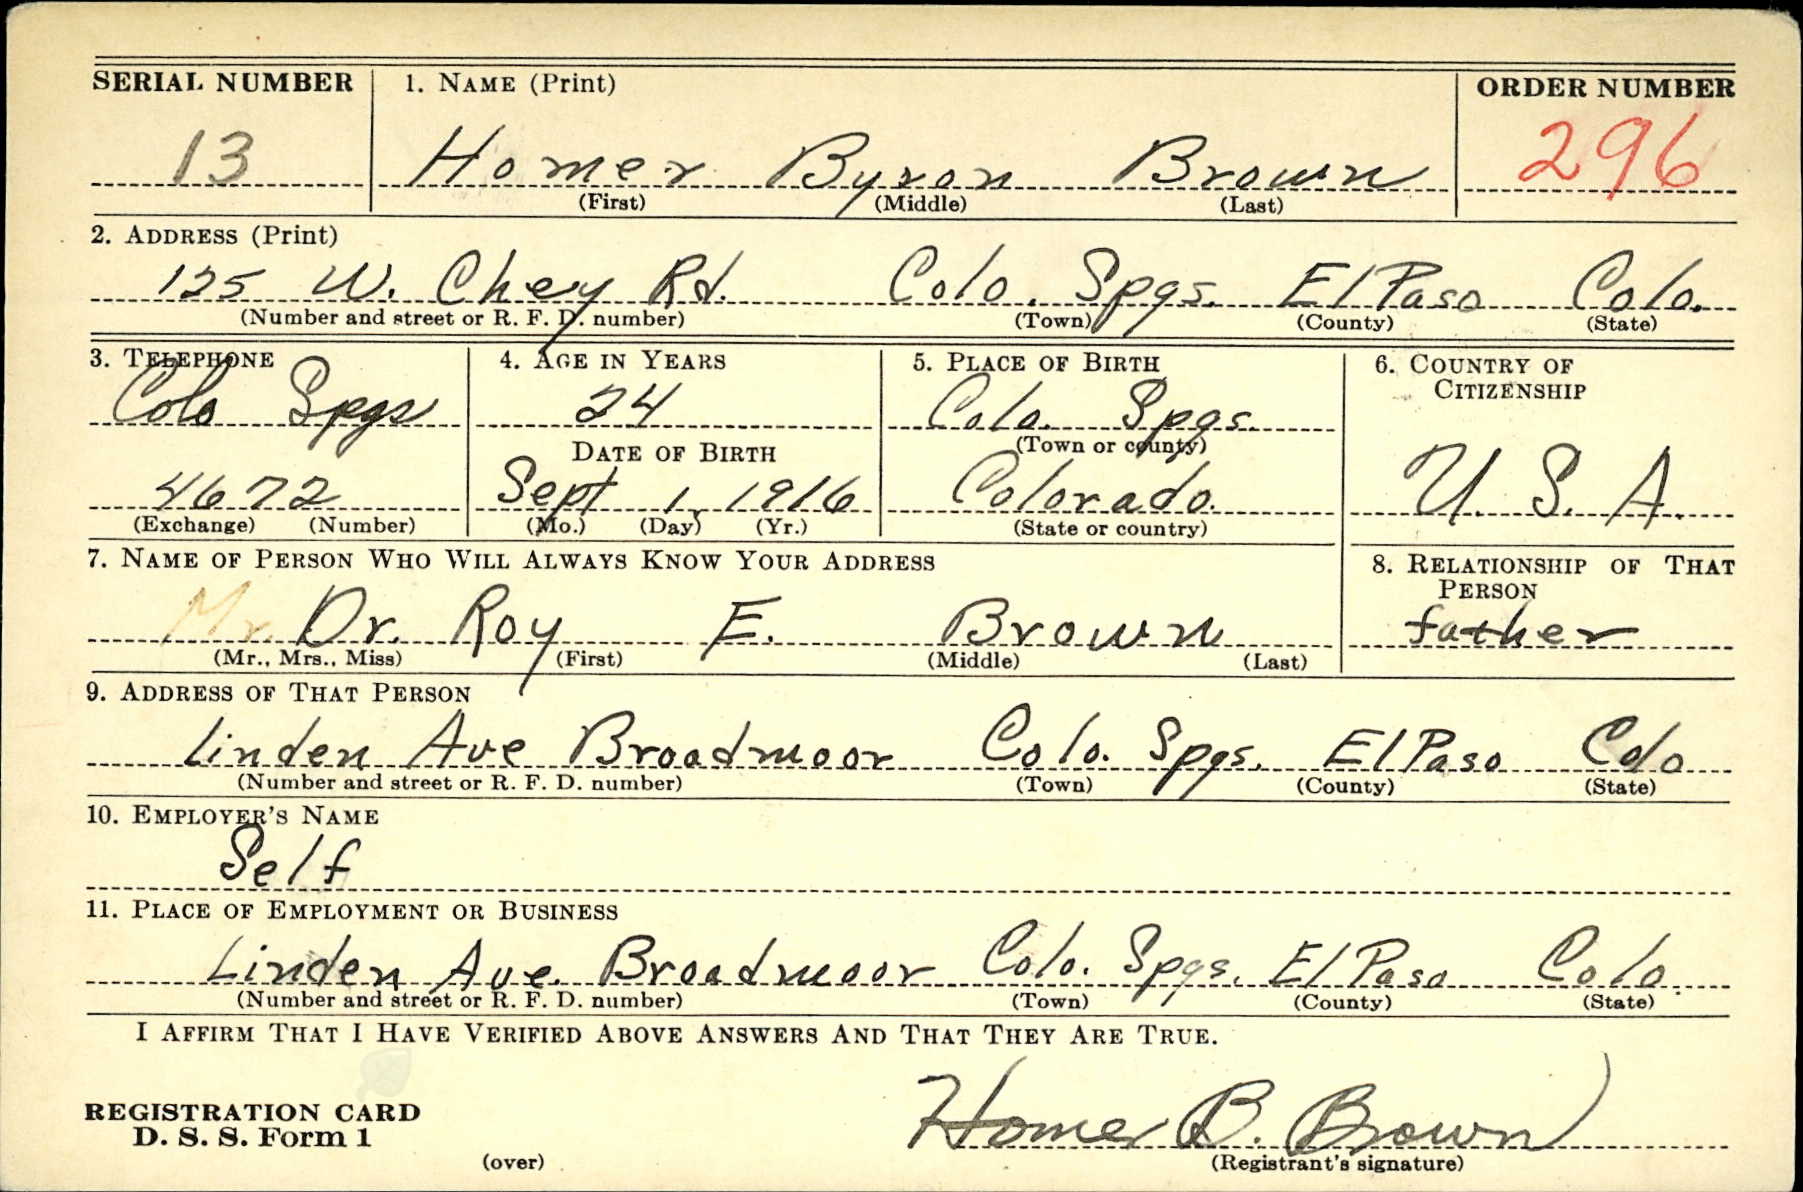 SERIAL NUMBER 1. NAME (Print) ORDER NUMBER
13 Homer Byron Brown 296
(First) (Middle) (Last)
2. ADDRESS (Print)
125 W. Chey Rd. Colo. Spgs. El Paso Colo.
(Number and street or R. F. D. number) (Town) (County) (State)
3. TELEPHONE 4. AGE IN YEARS 5. PLACE OF BIRTH 6. COUNTRY OF
CITIZENSHIP
Colo Spgs 24 Colo. Spgs.
DATE OF BIRTH (Town or county)
4672 Sept 1, 1916 Colorado. U. S. A.
(Exchange) (Number) (Mo.) (Day) (Yr.) (State or country)
7. NAME OF PERSON WHO WILL ALWAYS KNOW YOUR ADDRESS 8. RELATIONSHIP OF THAT
PERSON
Mr. Dr. Roy E. Brown father
(Mr., Mrs., Miss) (First) (Middle) (Last)
9. ADDRESS OF THAT PERSON
Linden Ave Broadmoor Colo. Spgs. El Paso Colo
(Number and street or R. F. D. number) (Town) (County) (State)
10. EMPLOYER'S NAME
Self
11. PLACE OF EMPLOYMENT OR BUSINESS
Linden Ave. Broadmoor Colo. Spgs. El Paso Colo.
(Number and street or R. F. D. number) (Town) (County) (State)
I AFFIRM THAT I HAVE VERIFIED ABOVE ANSWERS AND THAT THEY ARE TRUE.
REGISTRATION CARD
D. S. S. Form 1 Homer B. Brown
(over) (Registrant's signature)